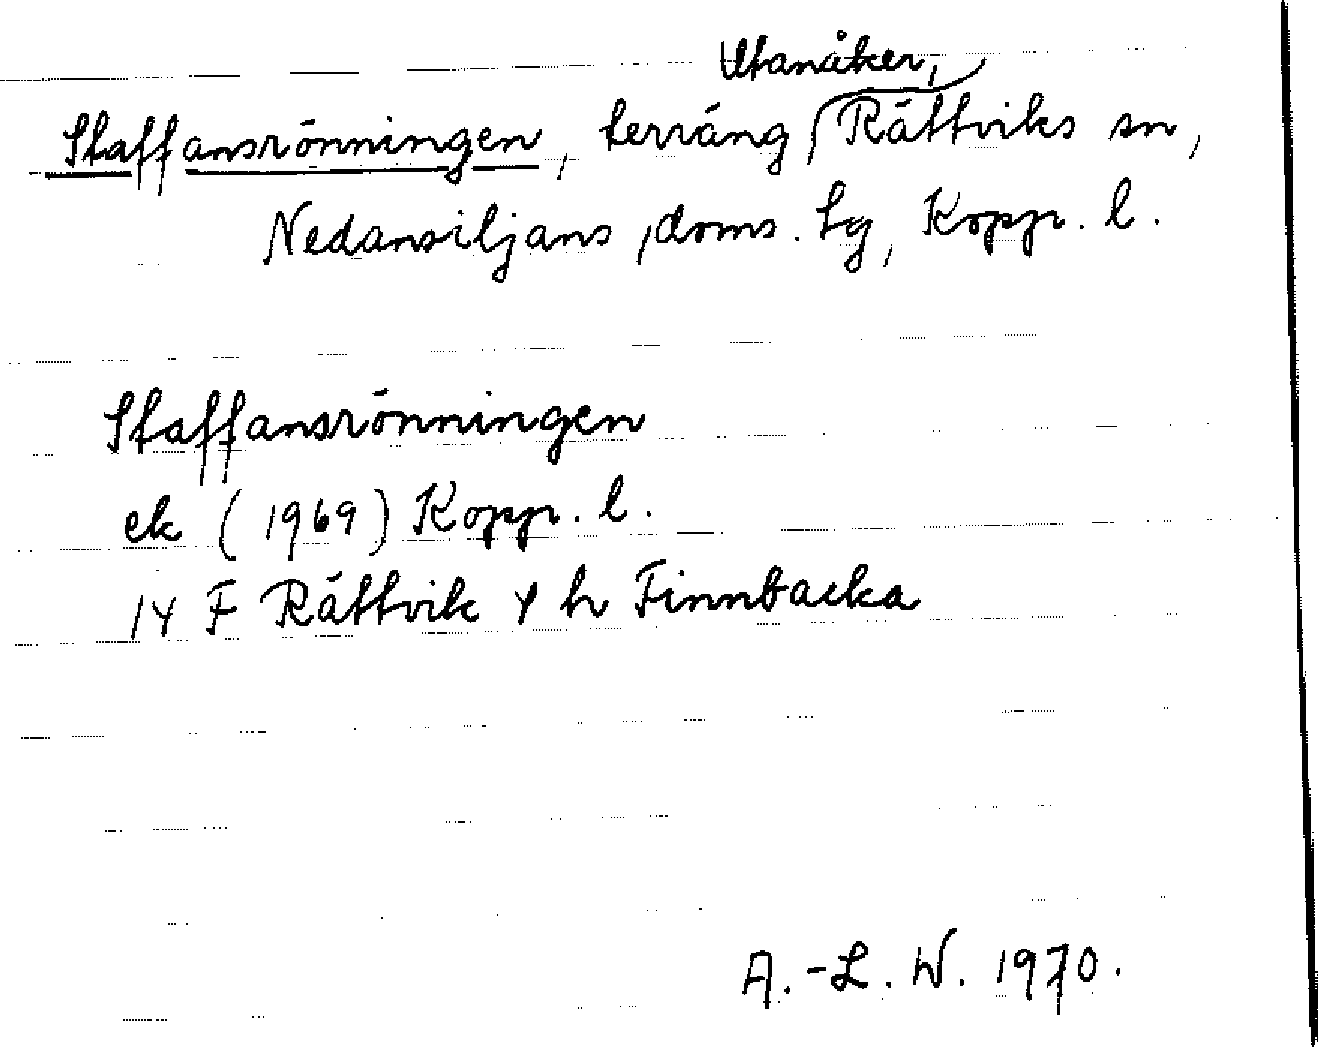 Utanåker,
Staffansrönningen, terräng Rättviks sn,
Nedansiljans doms. tg, Kopp. l.
Staffansrönningen
ek (1969) Kopp. l.
14 F Rättvik 4 h Finnbacka
A.-L. W. 1970.